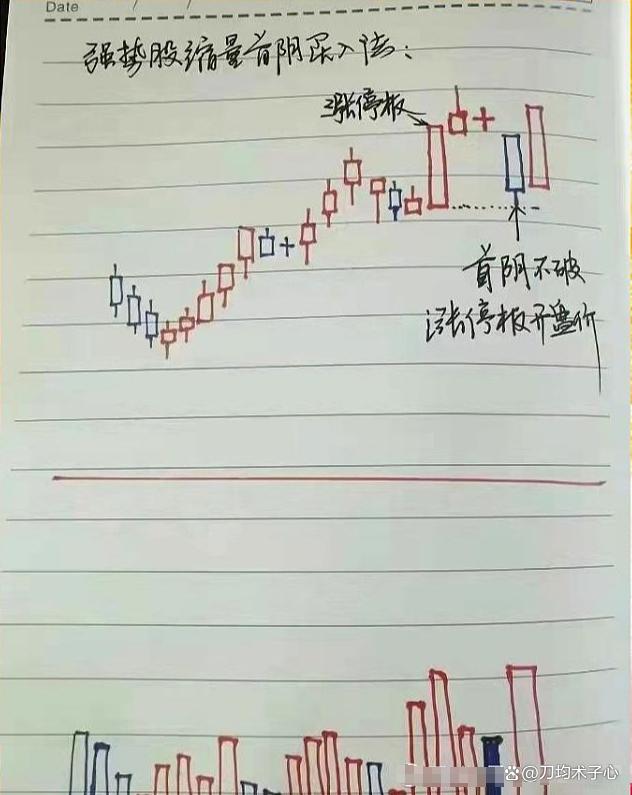 Date / /
强势股缩量首阴买入法：
涨停板
首阴不破
涨停板开盘价
@刀均术子心